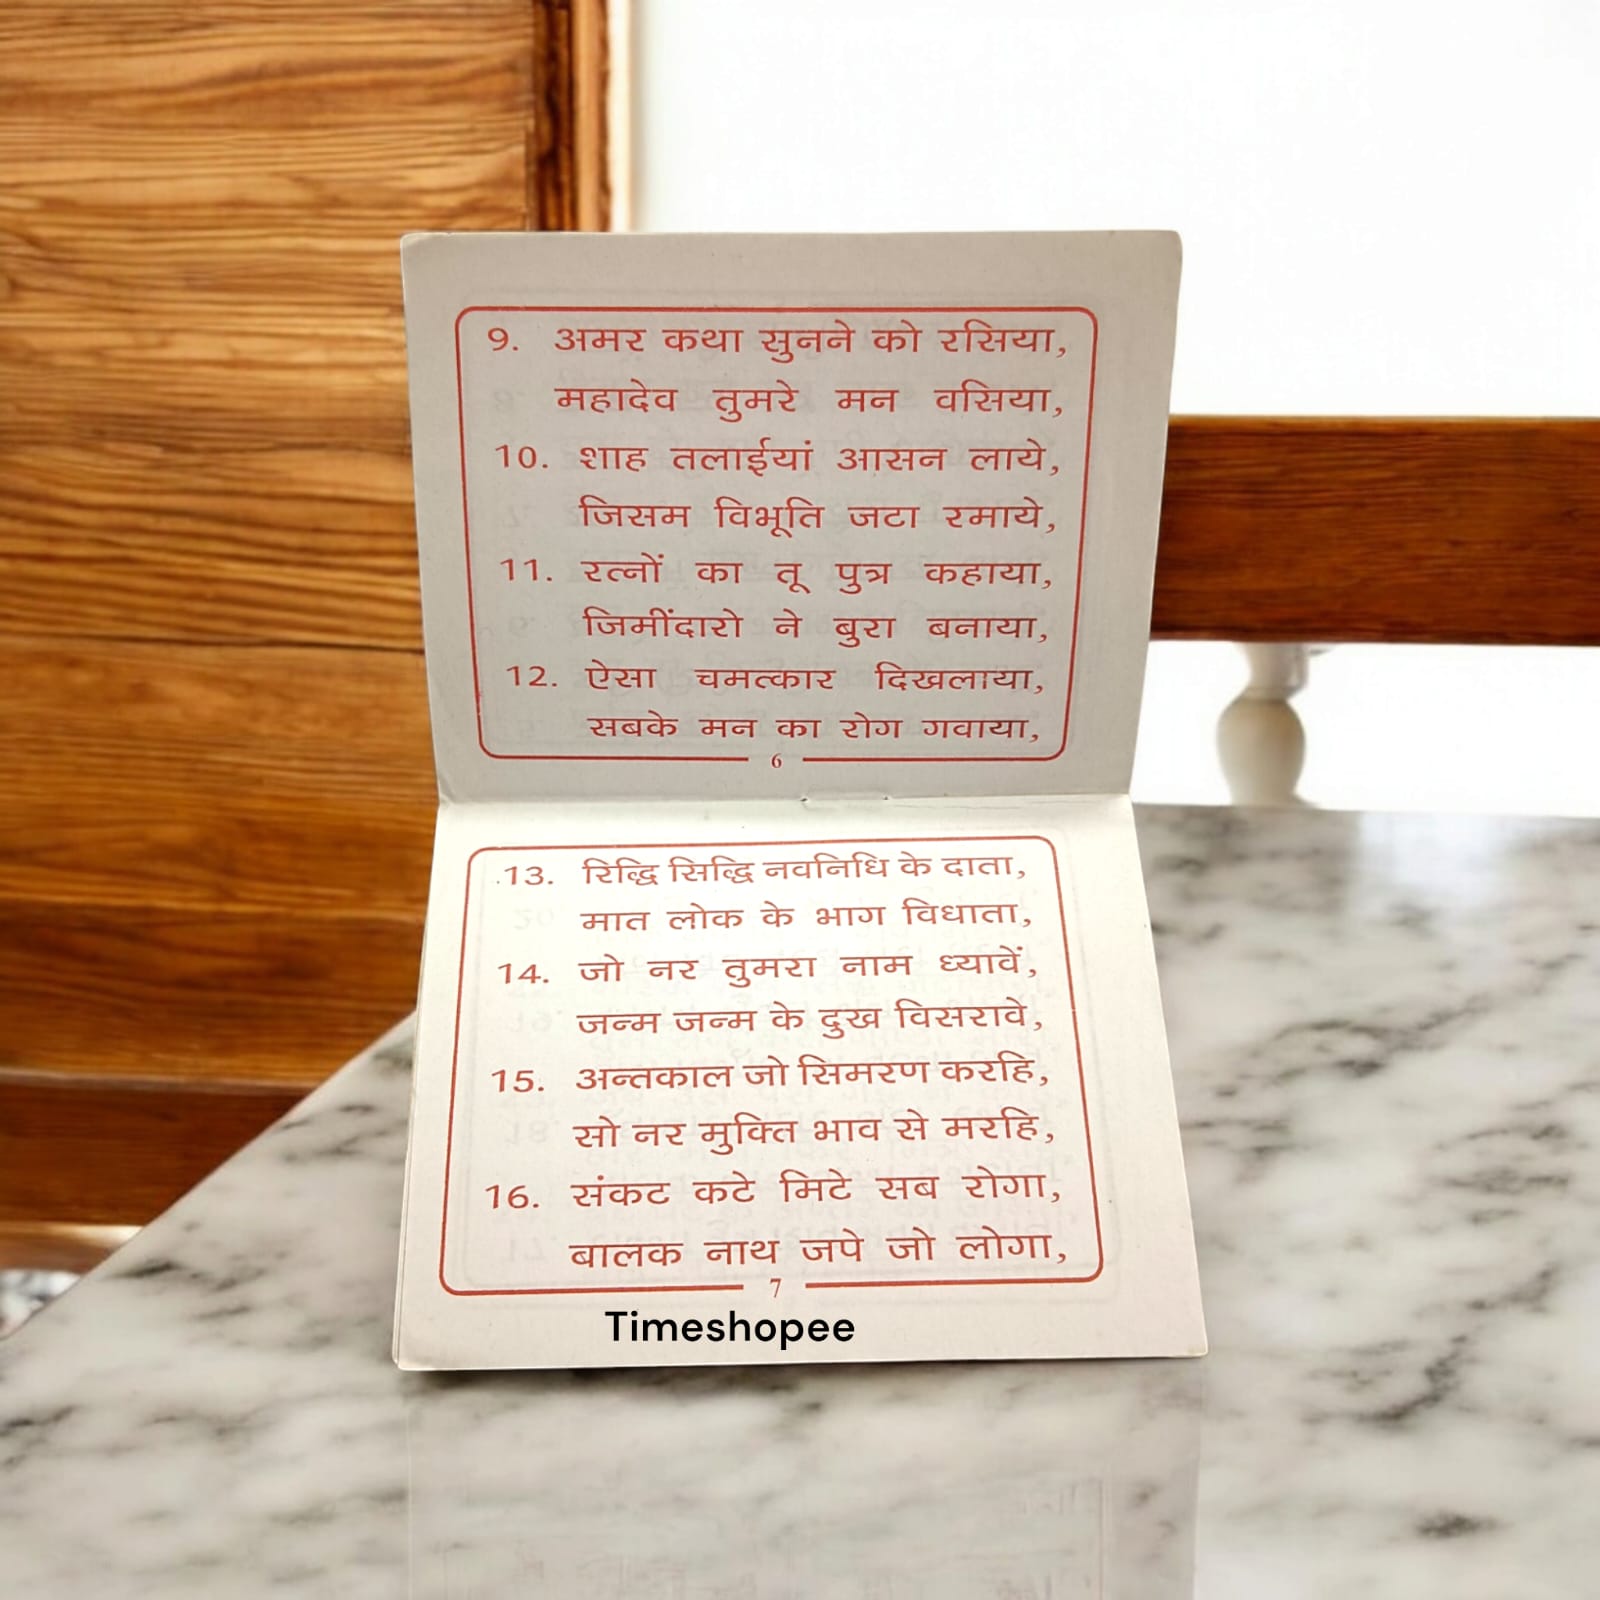 9. अमर कथा सुनने को रसिया,
महादेव तुमरे मन वसिया,
10. शाह तलाईयां आसन लाये,
जिसम विभूति जटा रमाये,
11. रत्नों का तू पुत्र कहाया,
जिमींदारो ने बुरा बनाया,
12. ऐसा चमत्कार दिखलाया,
सबके मन का रोग गवाया,
6
13. रिद्धि सिद्धि नवनिधि के दाता,
मात लोक के भाग विधाता,
14. जो नर तुमरा नाम ध्यावें,
जन्म जन्म के दुख विसरावे,
15. अन्तकाल जो सिमरण करहि,
सो नर मुक्ति भाव से मरहि,
16. संकट कटे मिटे सब रोगा,
बालक नाथ जपे जो लोगा,
7
Timeshopee